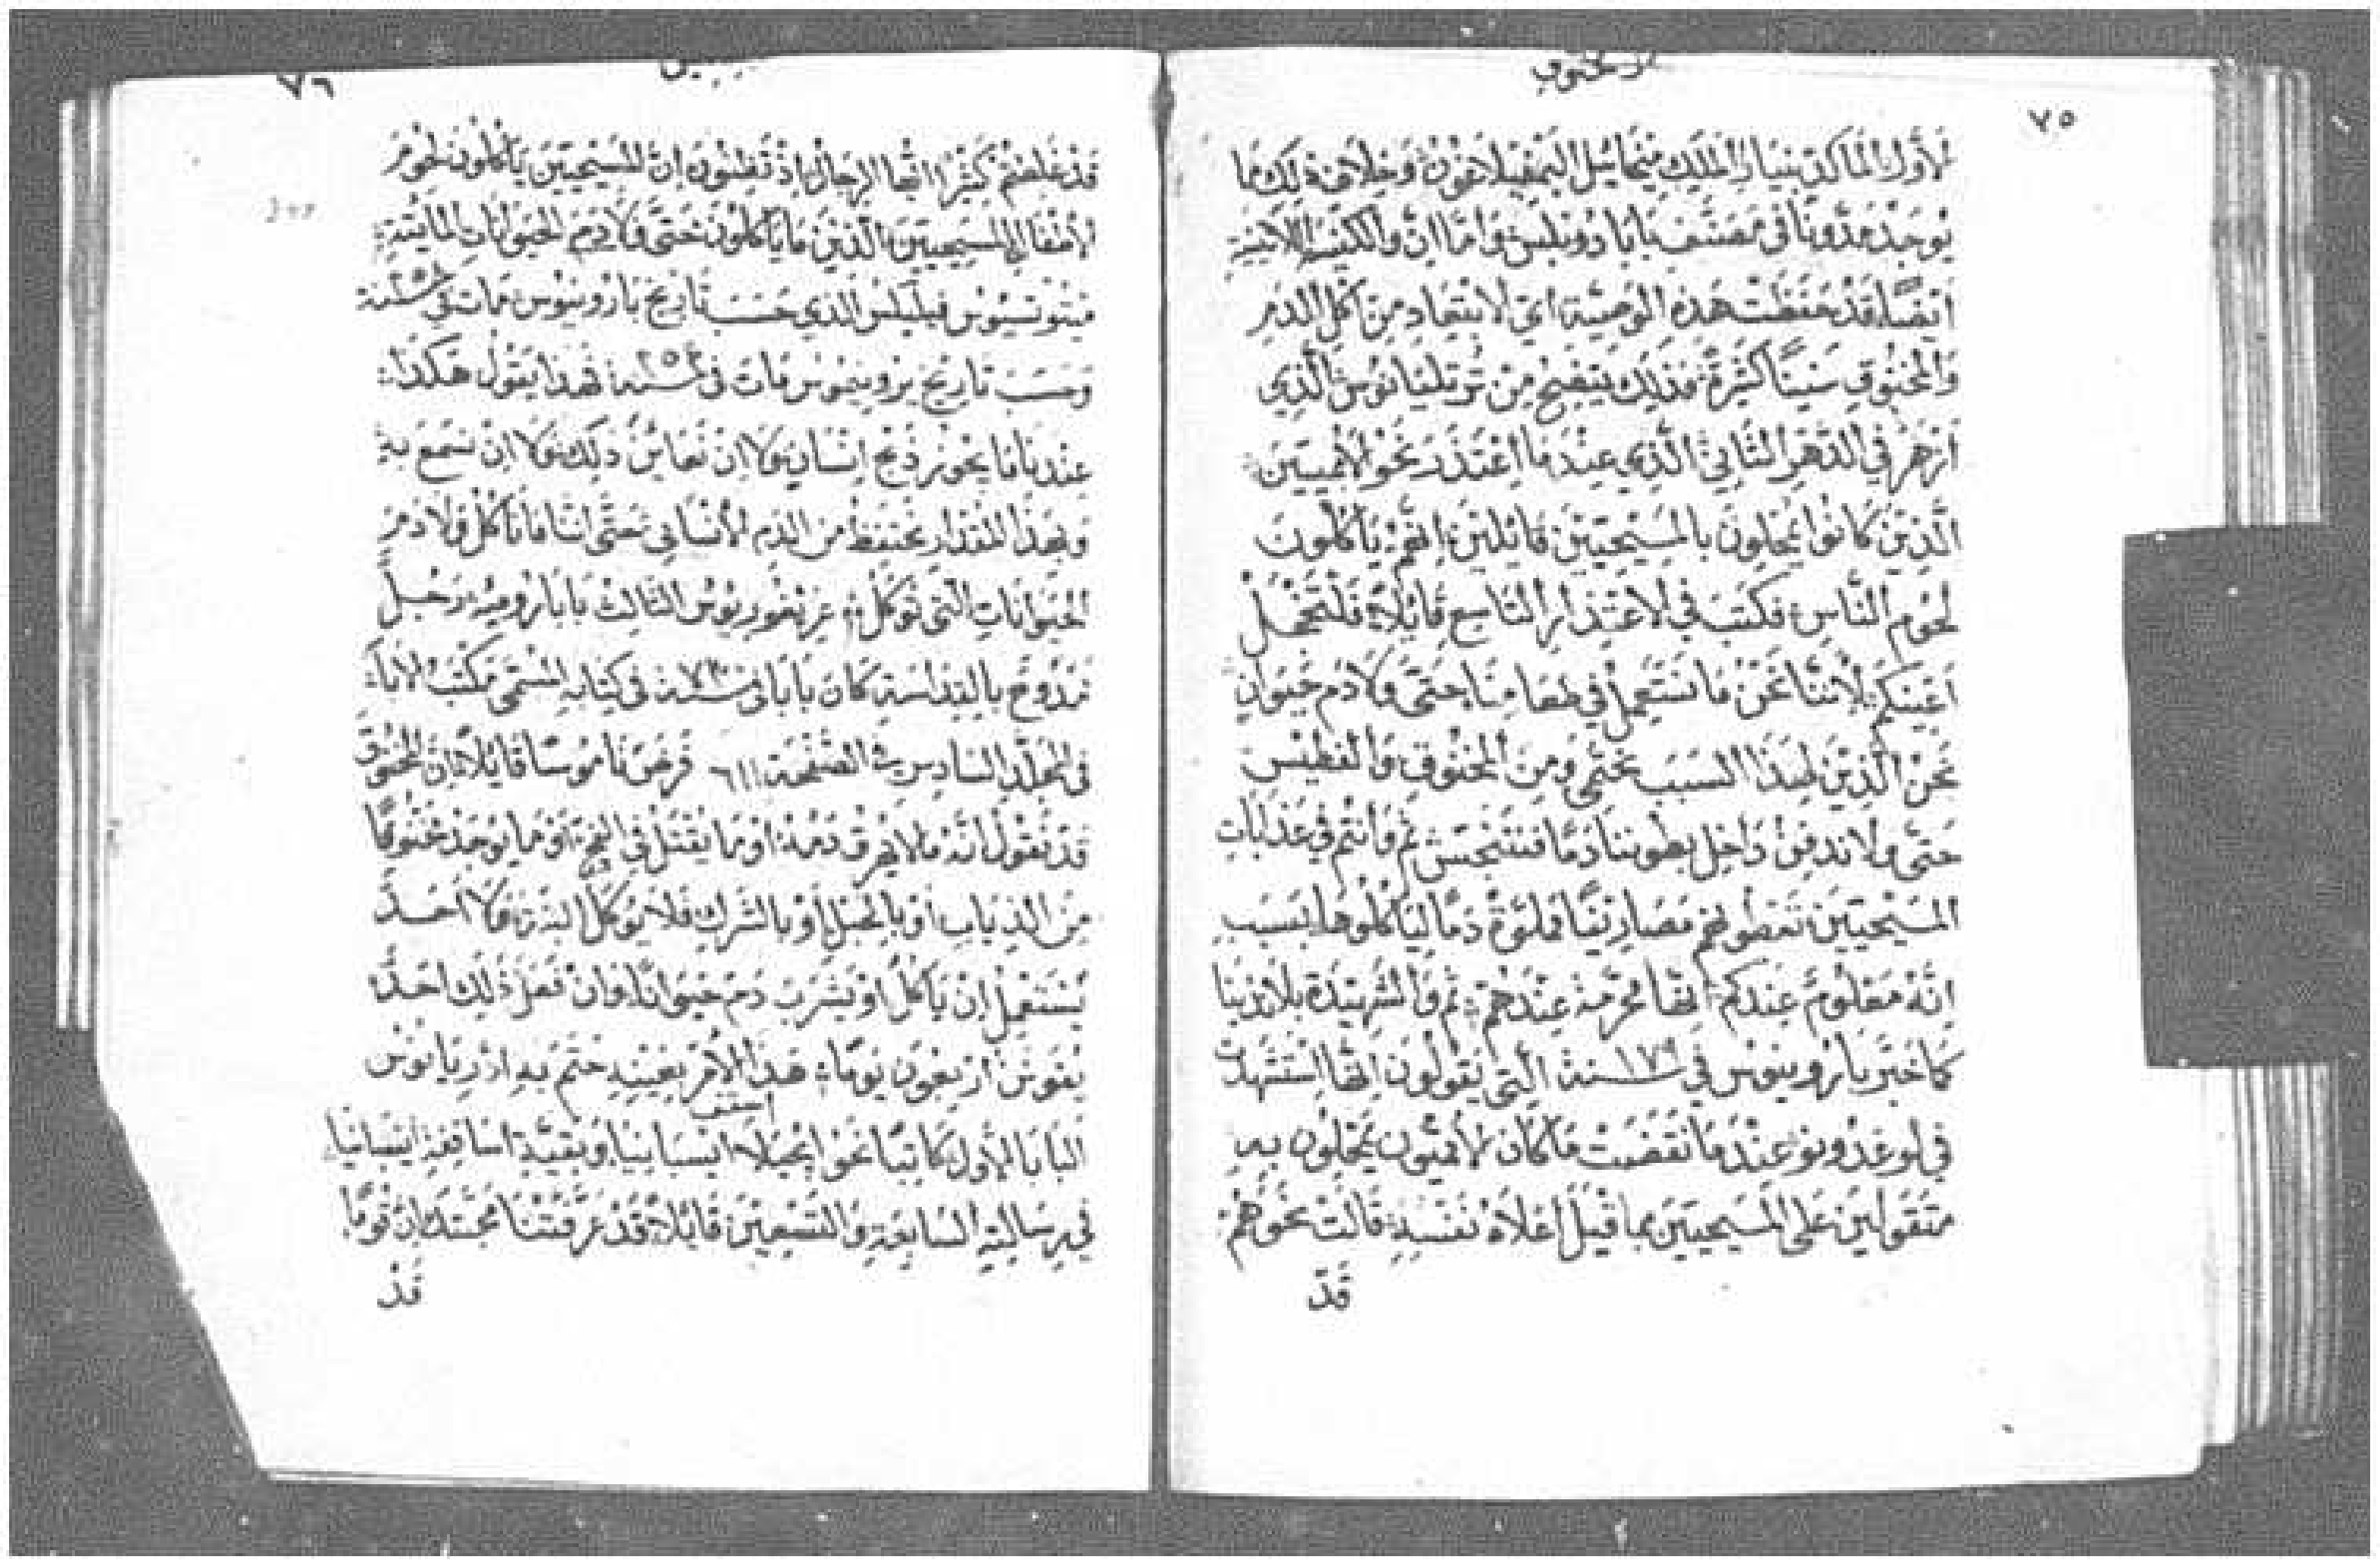 ٧٥
لاول الماكدينيا والملك ميخائيل البمفيلاغون وخلاف ذلك ما
يوجد مدونا في مصنف بابا دوبلس واما ان والكنيسة اللاتينية
ايضا قد حفظت هذه الوصية اي الابتعاد من اكل الدم
والمخنوق سنينا كثيرة فذلك يتضح من ترتليانوس الذي
ازهر في الدهر الثاني الذي عندما اعتذر نحو الامميين
الذين كانوا يخجلون بالمسيحيين قائلين انهم ياكلون
لحوم الناس فكتب في الاعتذار التاسع قائلا فلتخجل
اعينكم لاننا نحن ما نستعمل في طعامنا حتى ولا دم حيوان
نحن الذين لهذا السبب نحتمي ومن المخنوق والفطيس
حتى ولا ندفن داخل بطوننا دما فنتنجس ثم وانتم في عذابات
المسيحيين تعطوهم مصارينا مملوة دما لياكلوها بسبب
انه معلوم عندكم انها محرمة عندهم ثم والشهيدة بلاندينا
كما خبر بارونيوس في سنة ١٧٩ التي يقولون انها استشهدت
في لوغدونو عندما نقضت ما كان الامميون يخجلون به
متقولين على المسيحيين بما قيل اعلاه نفسه قالت نحوهم
قد
٧٦
قد غلطتم كثيرا ايها الرجال اذ تظنون ان المسيحيين ياكلون لحوم
الاطفال المسيحيين الذين ما ياكلون حتى ولا دم الحيوانات المايتة
مينوتسيوس فيليكس الذي حسب تاريخ بارونيوس مات في سنة
وحسب تاريخ يرونيموس مات في سنة فهذا يقول هكذا
عندنا ما يجوز ذبح انسان ولا ان نعاين ذلك ولا ان نسمع به
وبهذا المقدار نحتفظ من الدم الانساني حتى اننا ما ناكل ولا دم
الحيوانات التي توكل غريغوريوس الثالث بابا رومية رجل
ممدوح بالقداسة كان بابا في سنة في كتابه المسمى مكتب الاباء
في المجلد السادس الصفحة ٦١١ فرض ناموسا قائلا بان المخنوق
قد نقول انه ما لا يهرق دمه او ما يقتل في الفخ او ما يوجد مخنوقا
من الذياب او بالحبل او بالشرك فلا يوكل البتة ولا احد
يستعمل ان ياكل او يشرب دم حيوانا وان فعل ذلك احد
يقونن اربعون يوما هذا الامر بعينه حتم به ادريانوس
البابا الاول كاتبا نحو ايجيلا اسقف ايسبانيا وبقية اساقفة ايسبانيا
في رسالته السابعة والتسعين قائلا قد عرفتنا محبتك ان قوما
قد